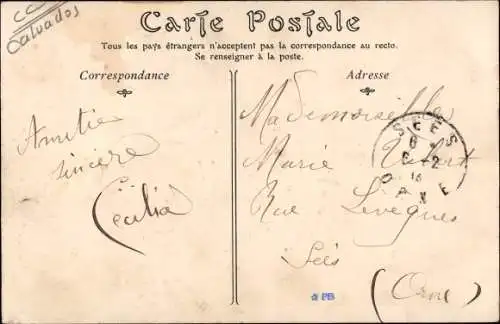 CC
Calvados
Carte Postale
Tous les pays étrangers n'acceptent pas la correspondance au recto.
Se renseigner à la poste.
Correspondance
Adresse
Amitié
sincère
Cécilia
Mademoiselle
Marie
Rue Lévêques
Sées
(Orne)
SÉES
ORNE
PB